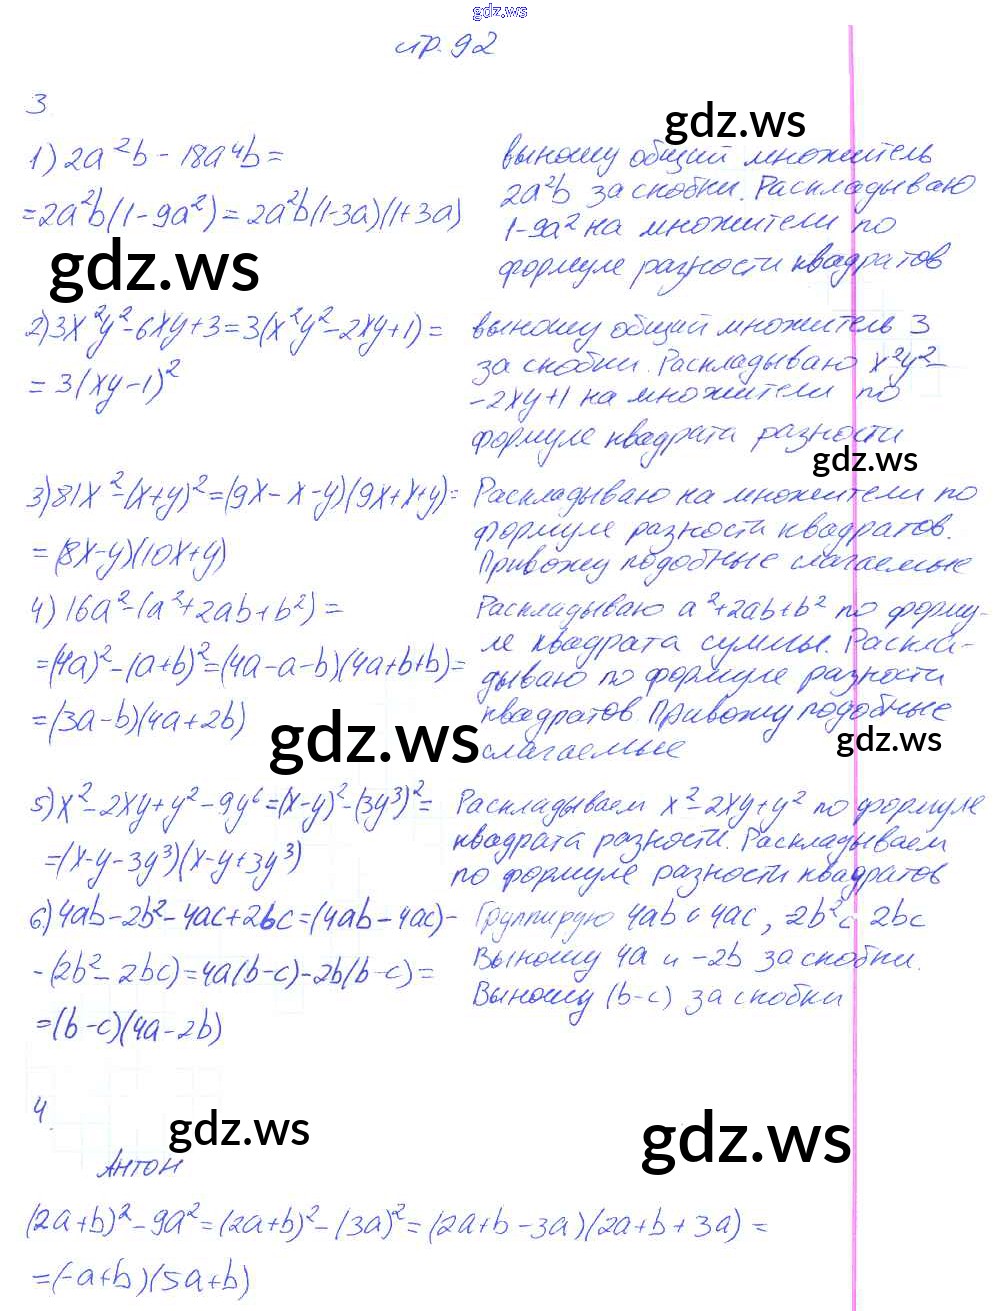 gdz.ws
стр. 92
3
gdz.ws
1) 2a²b - 18a⁴b =
= 2a²b(1 - 9a²) = 2a²b(1-3a)(1+3a)
выношу общий множитель
2a²b за скобки. Раскладываю
1-9a² на множители по
формуле разности квадратов
gdz.ws
2) 3x²y² - 6xy + 3 = 3(x²y² - 2xy + 1) =
= 3(xy - 1)²
выношу общий множитель 3
за скобки. Раскладываю x²y² -
- 2xy + 1 на множители по
формуле квадрата разности
gdz.ws
3) 81x² - (x+y)² = (9x - x - y)(9x + x + y) =
= (8x - y)(10x + y)
Раскладываю на множители по
формуле разности квадратов.
Привожу подобные слагаемые
4) 16a² - (a² + 2ab + b²) =
= (4a)² - (a+b)² = (4a - a - b)(4a + b + b) =
= (3a - b)(4a + 2b)
Раскладываю a² + 2ab + b² по форму-
ле квадрата суммы. Раскла-
дываю по формуле разности
квадратов. Привожу подобные
слагаемые
gdz.ws
gdz.ws
5) x² - 2xy + y² - 9y⁶ = (x-y)² - (3y³)² =
= (x - y - 3y³)(x - y + 3y³)
Раскладываем x² - 2xy + y² по формуле
квадрата разности. Раскладываем
по формуле разности квадратов
6) 4ab - 2b² - 4ac + 2bc = (4ab - 4ac) -
- (2b² - 2bc) = 4a(b-c) - 2b(b-c) =
= (b-c)(4a - 2b)
Группирую 4ab с 4ac, -2b² с 2bc
Выношу 4a и -2b за скобки.
Выношу (b-c) за скобки
4.
gdz.ws
gdz.ws
Антон
(2a+b)² - 9a² = (2a+b)² - (3a)² = (2a+b - 3a)(2a+b + 3a) =
= (-a+b)(5a+b)